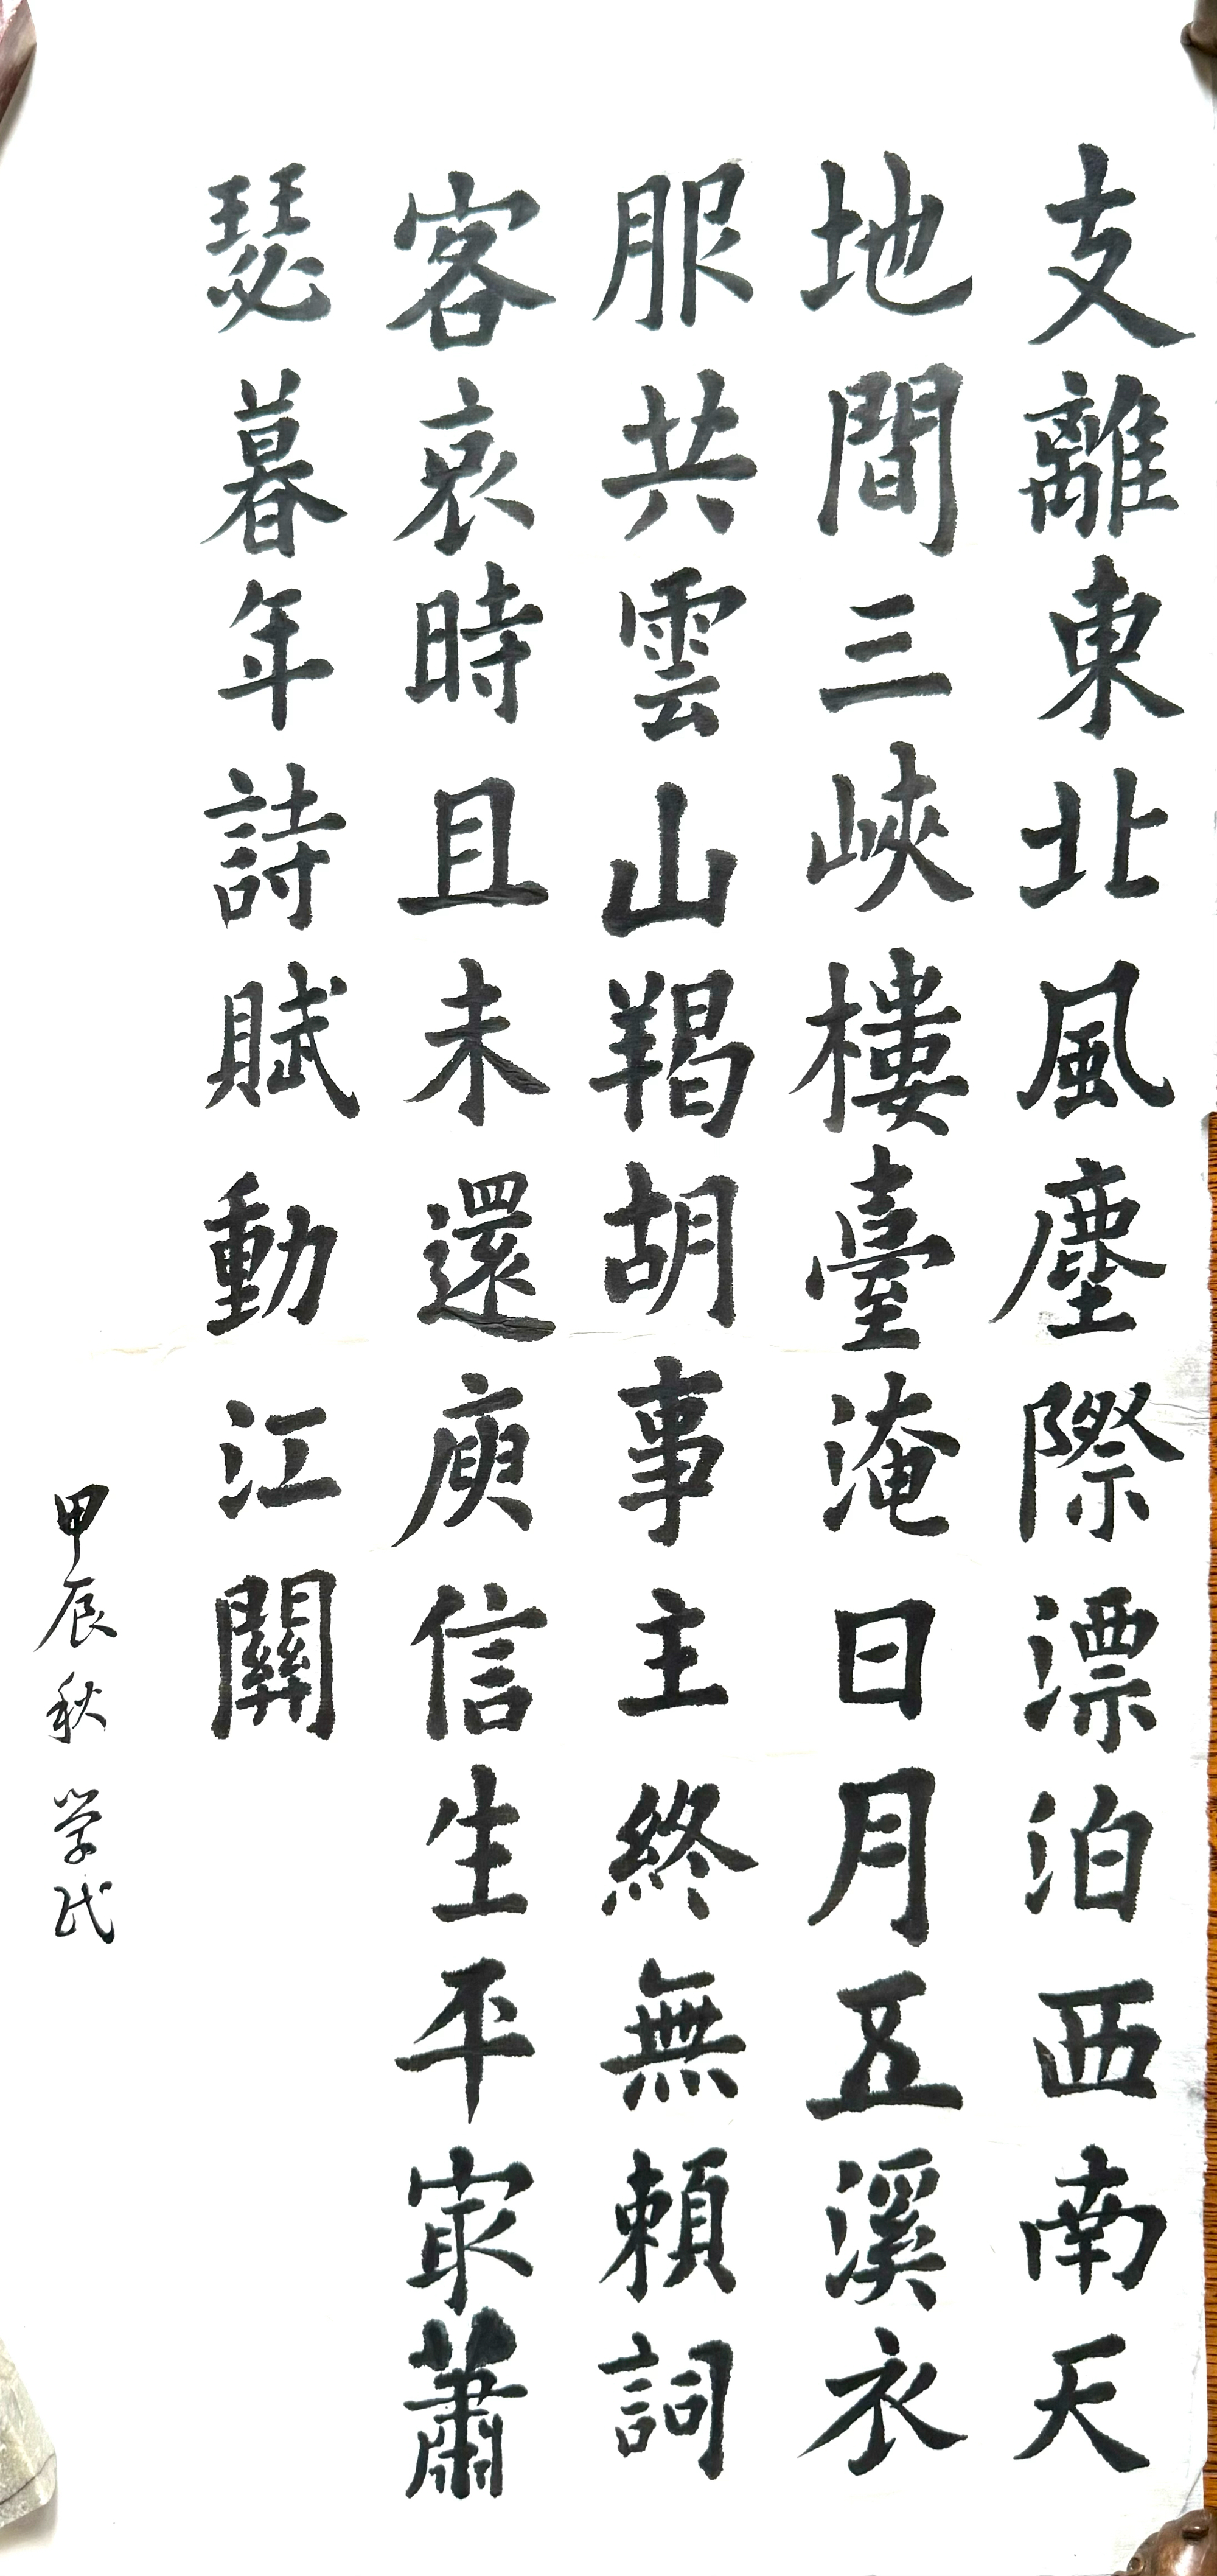 支離東北風塵際漂泊西南天
地間三峽樓臺淹日月五溪衣
服共雲山羯胡事主終無賴詞
客哀時且未還庾信生平冣蕭
瑟暮年詩賦動江關
甲辰秋学民